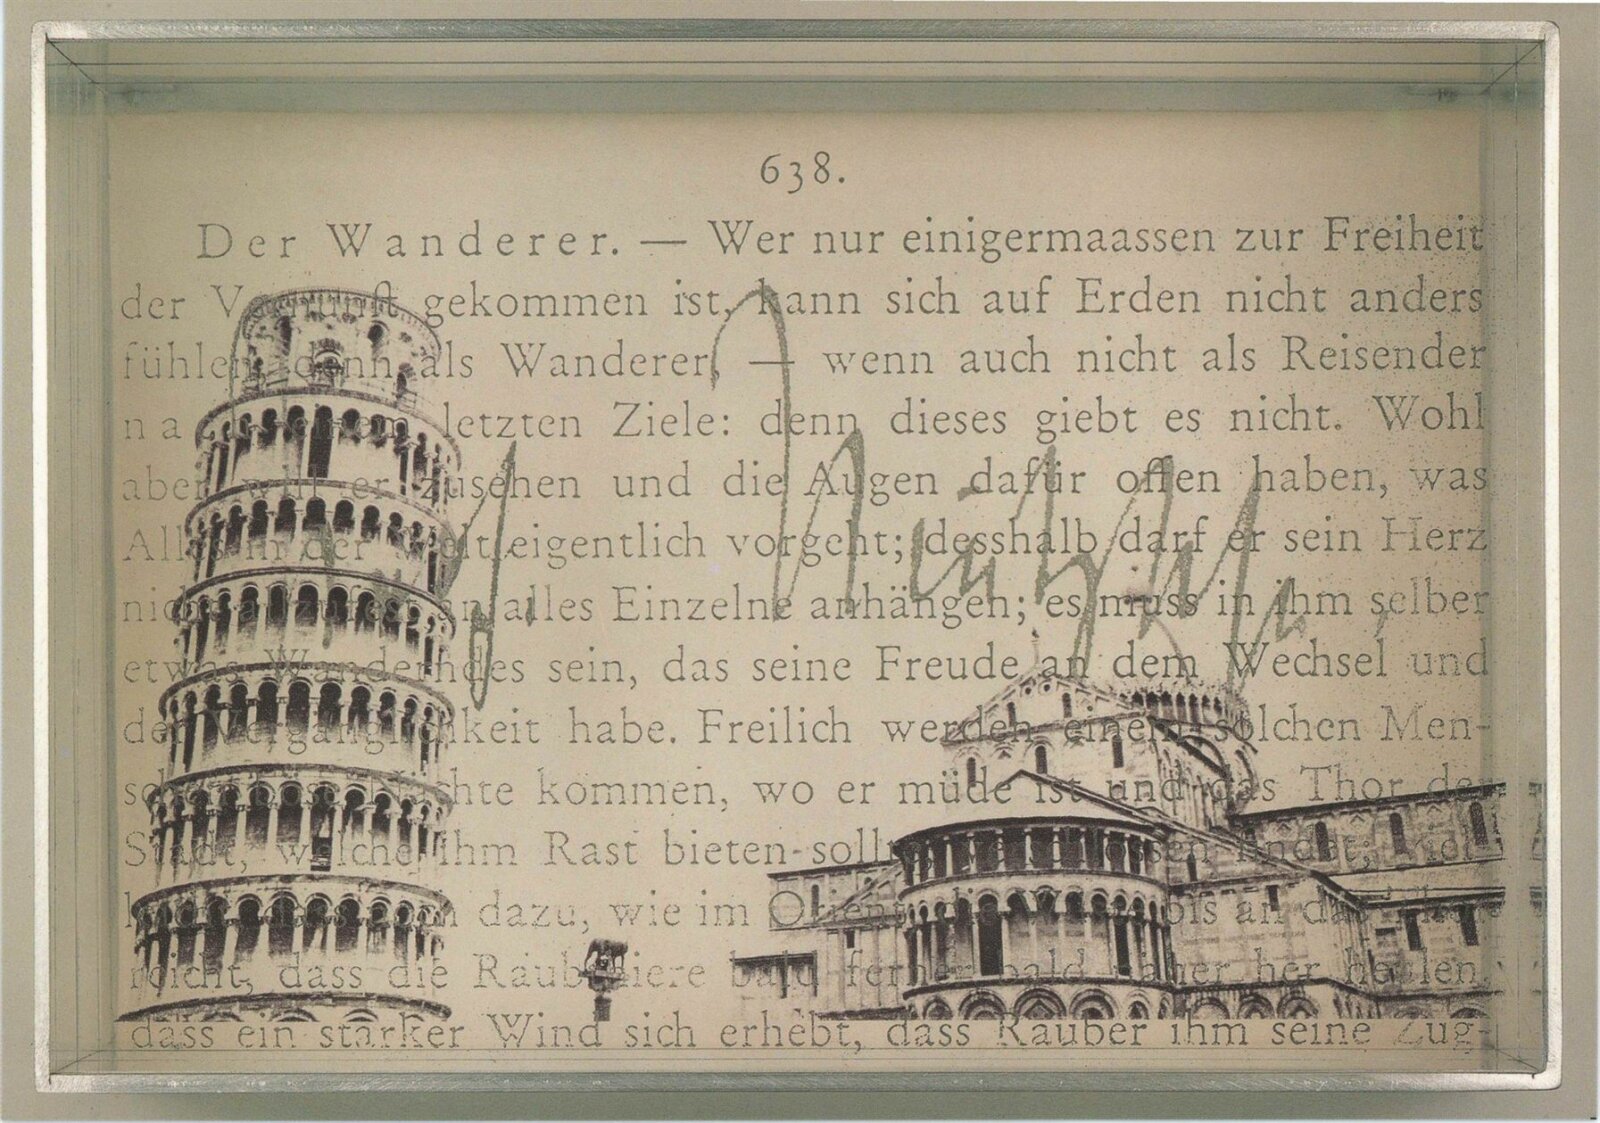 638.
Der Wanderer. — Wer nur einigermaassen zur Freiheit
der Vernunft gekommen ist, kann sich auf Erden nicht anders
fühlen, denn als Wanderer, — wenn auch nicht als Reisender
nach einem letzten Ziele: denn dieses giebt es nicht. Wohl
aber will er zusehen und die Augen dafür offen haben, was
Alles in der Welt eigentlich vorgeht; desshalb darf er sein Herz
nicht allzufest an alles Einzelne anhängen; es muss in ihm selber
etwas Wanderndes sein, das seine Freude an dem Wechsel und
der Vergänglichkeit habe. Freilich werden einem solchen Men-
schen böse Nächte kommen, wo er müde ist und das Thor der
Stadt, welche ihm Rast bieten sollte, verschlossen findet; viel-
dazu, wie im Orient die Wüste bis an das Thor
reicht, dass die Raubthiere bald ferner bald näher her heulen,
dass ein starker Wind sich erhebt, dass Räuber ihm seine Zug-